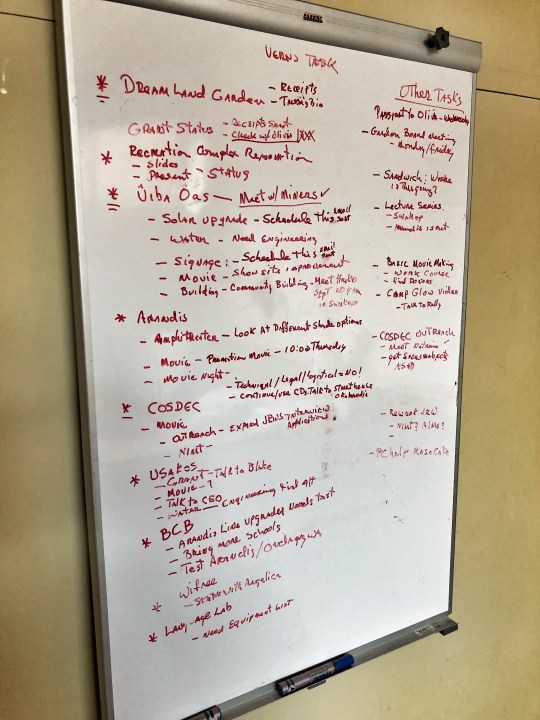 VERN'S TASK
* DREAMLAND GARDEN - RECEIPTS
- Bio
GRANT STATUS - RECEIPTS SENT
- Check w/ Olivia XXX
* RECREATION COMPLEX RENOVATION
- Slides
- Present - STATUS
* Ûiba Ôas - Meet w/ MINERS ✓
- SOLAR UPGRADE - Schedule This email sent
- WATER - Need Engineering
- Signage: - Schedule This email sent
- MOVIE - Show site improvement
- Building - Community Building - Meet
Sept
in Swakop
* ARANDIS
- Amphitheater - LOOK AT Different Shade options
- MOVIE - Promotion Movie - 10:00 Thursday
- MOVIE Night - - Technical/Legal/Logistical = NO!
- continue/use CDs. Talk to
or Arandis
* COSDEC
- MOVIE
- OUTREACH - EXPAND Interview
Applications
- NIMT -
* USAKOS
- GRANT - Talk to Blake
- MOVIE - ?
- Talk to CEO
- WATER - Engineering
* BCB
- Arandis Line upgrade Needs test
- Bring more schools
- Test Arandis/
* Wifree
- Status with Angelica
* Language Lab
- Need Equipment List
OTHER TASKS
PASSPORT TO Olivia - Wednesday
- Garden Board Meeting
- Monday/Friday
- SANDWICH:
IS This going?
- Lecture Series
- Swakop
- is set
- BASIC Movie Making
- Work Course
- find
- CAMP GLOW Video
- Talk To
- COSDEC OUTREACH
- Meet ✓
- get
ASAP
- Reward
- NIMT?
-
- PC help